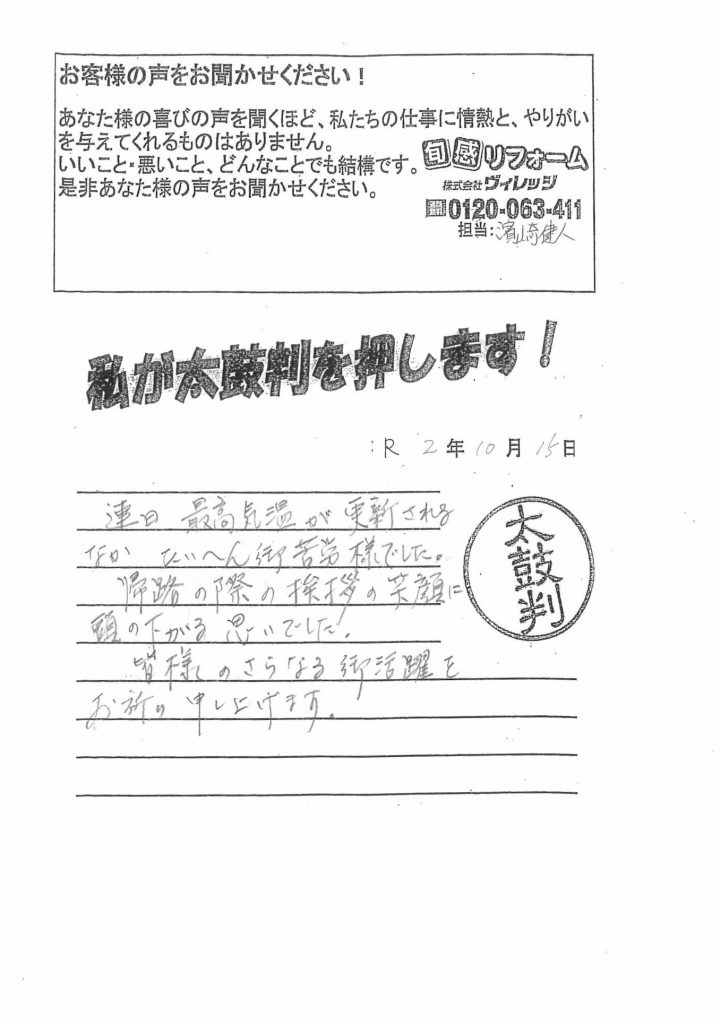 お客様の声をお聞かせください！
あなた様の喜びの声を聞くほど、私たちの仕事に情熱と、やりがい
を与えてくれるものはありません。
いいこと・悪いこと、どんなことでも結構です。
是非あなた様の声をお聞かせください。
旬感リフォーム
株式会社ヴィレッジ
0120-063-411
担当:濱崎健人
私が太鼓判を押します！
:R 2年10月15日
連日 最高気温が更新される
なか たいへん御苦労様でした。
帰路の際の挨拶の笑顔に
頭の下がる思いでした!
皆様のさらなる御活躍を
お祈り申し上げます。
太鼓判